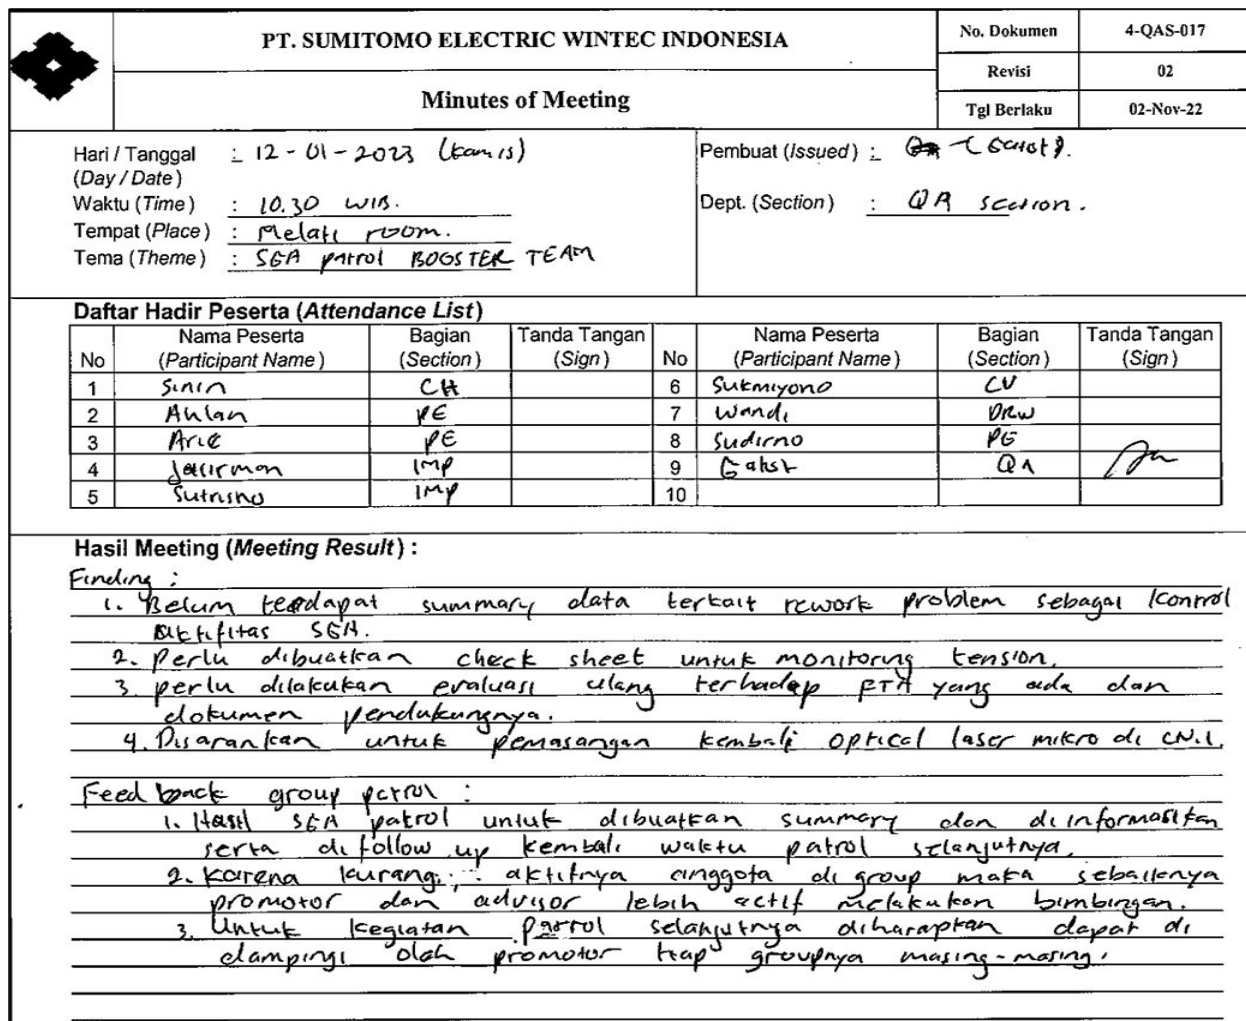 PT. SUMITOMO ELECTRIC WINTEC INDONESIA
No. Dokumen 4-QAS-017
Revisi 02
Minutes of Meeting
Tgl Berlaku 02-Nov-22
Hari / Tanggal : 12 - 01 - 2023 (kamis)
(Day / Date)
Pembuat (Issued) :
Waktu (Time) : 10.30 WIB.
Dept. (Section) : QA section.
Tempat (Place) : Melati room.
Tema (Theme) : SGA patrol BOOSTER TEAM
Daftar Hadir Peserta (Attendance List)
No Nama Peserta (Participant Name) Bagian (Section) Tanda Tangan (Sign) No Nama Peserta (Participant Name) Bagian (Section) Tanda Tangan (Sign)
1 Sinin CH 6 Sukmiyono CV
2 Ahlan PE 7 Wandi DRW
3 Arie PE 8 Sudirno PE
4 IMP 9 Gatot QA
5 Sutrisno IMP 10
Hasil Meeting (Meeting Result) :
Finding :
1. Belum terdapat summary data terkait rework problem sebagai kontrol
aktifitas SGA.
2. Perlu dibuatkan check sheet untuk monitoring tension.
3. perlu dilakukan evaluasi ulang terhadap FTA yang ada dan
dokumen pendukungnya.
4. Disarankan untuk pemasangan kembali optical laser mikro di CN.1.
Feed back group patrol :
1. Hasil SGA patrol untuk dibuatkan summary dan di informasikan
serta di follow up kembali waktu patrol selanjutnya.
2. Karena kurang aktifnya anggota di group maka sebaiknya
promotor dan advisor lebih actif melakukan bimbingan.
3. Untuk kegiatan patrol selanjutnya diharapkan dapat di
dampingi oleh promotor tiap groupnya masing-masing.